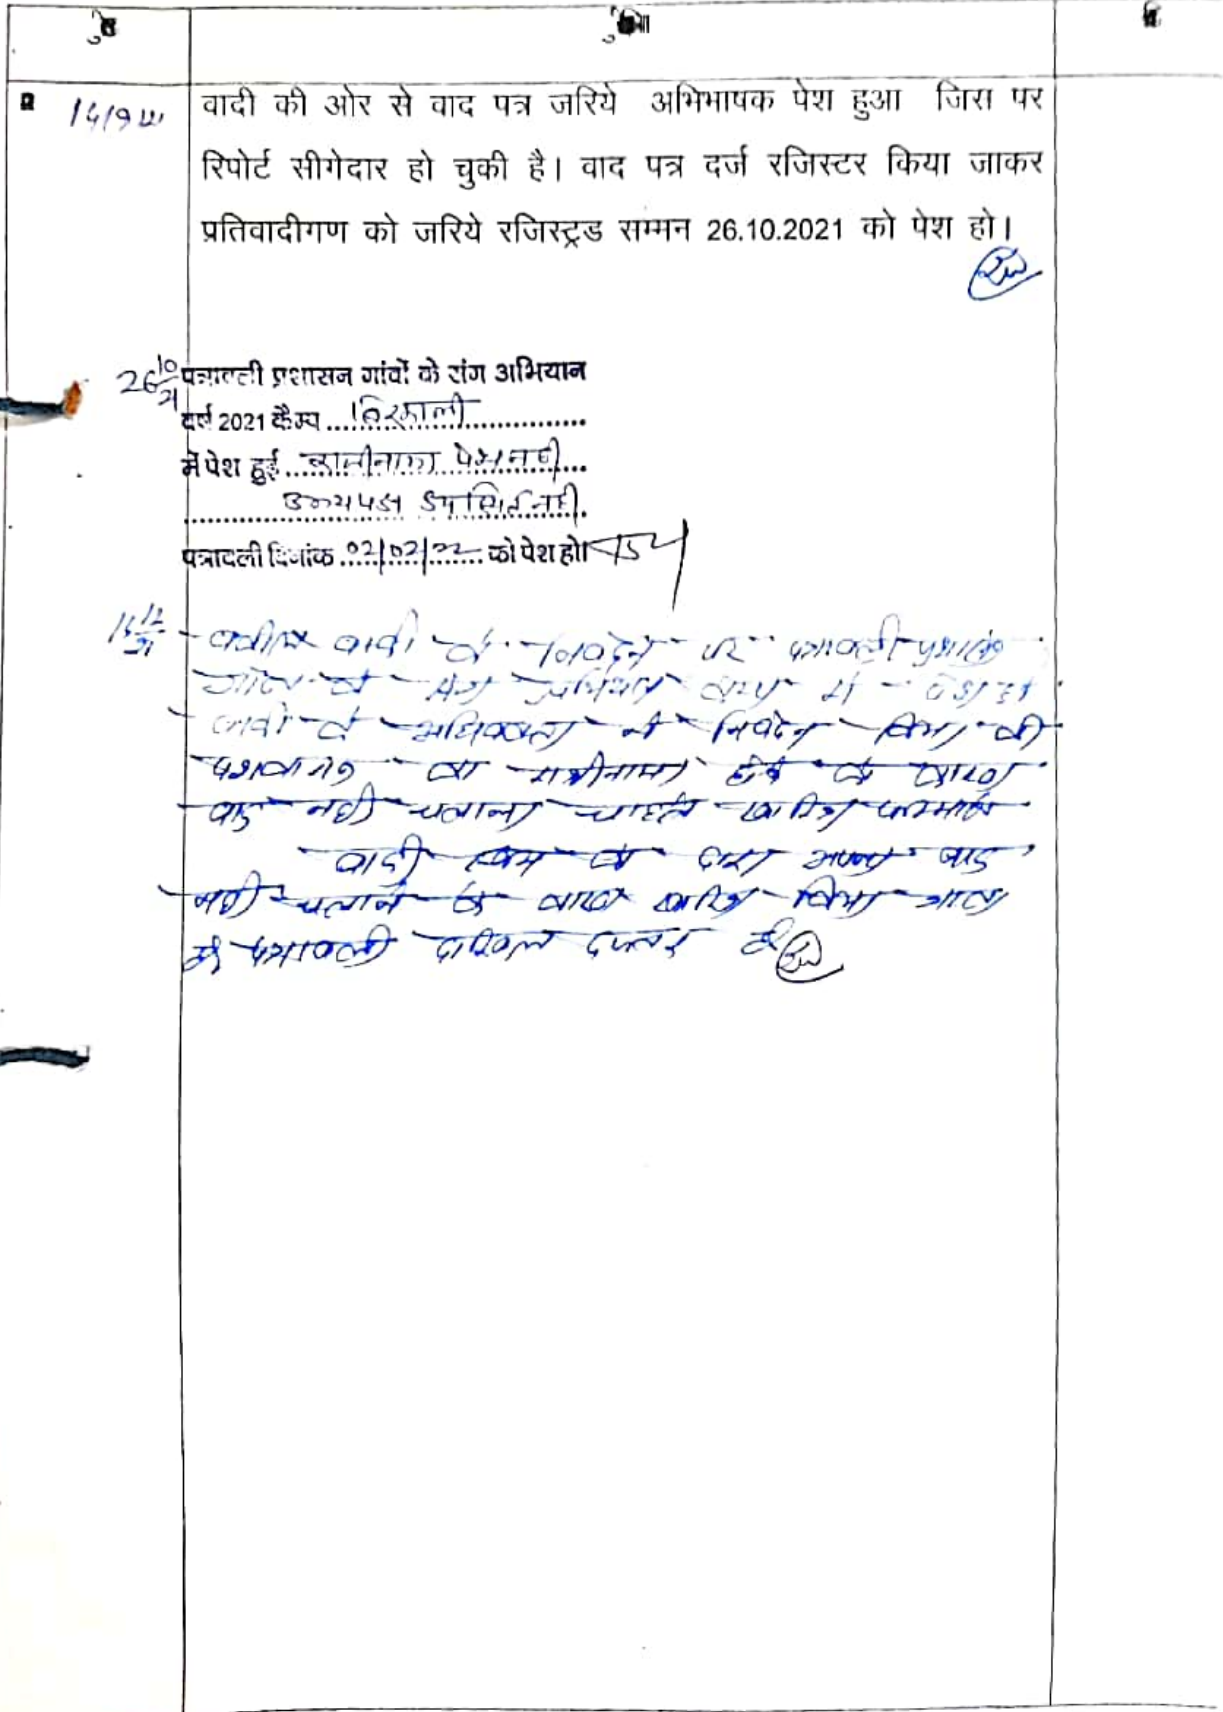 वादी की ओर से वाद पत्र जरिये अभिभाषक पेश हुआ जिस पर
रिपोर्ट सीगेदार हो चुकी है। वाद पत्र दर्ज रजिस्टर किया जाकर
प्रतिवादीगण को जरिये रजिस्ट्रड सम्मन 26.10.2021 को पेश हो।
26 10/21 पत्रावली प्रशासन गांवों के संग अभियान
वर्ष 2021 कैम्प ..........
में पेश हुई राजीनामा पेश नही
उभयपक्ष उपस्थित नही
पत्रावली दिनांक 02/02/22 को पेश हो।
वादी के निवेदन पर पत्रावली प्रशासन
के संग अभियान में पेश हुई
वादी के अधिवक्ता ने निवेदन किया की
का राजीनामा होने के कारण
वाद नही चलाना चाहते खारिज फरमावे
वादी स्वयं के द्वारा अपना वाद
नही चलाने के कारण खारिज किया जाता
है पत्रावली दाखिल दफ्तर हो